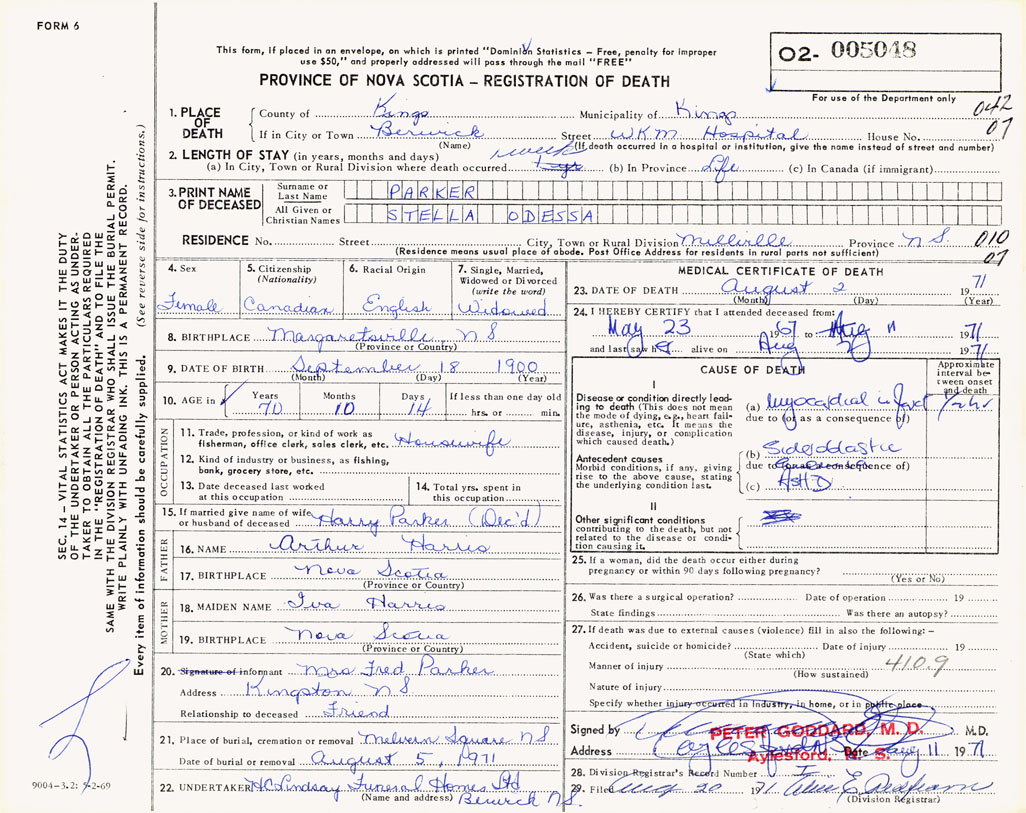 FORM 6
This form, if placed in an envelope, on which is printed "Dominion Statistics – Free, penalty for improper
use $50," and properly addressed will pass through the mail "FREE"
PROVINCE OF NOVA SCOTIA – REGISTRATION OF DEATH
02- 005048
For use of the Department only
042
07
1. PLACE OF DEATH
County of Kings Municipality of Kings
If in City or Town Berwick Street WKM Hospital House No.
(Name) (If death occurred in a hospital or institution, give the name instead of street and number)
2. LENGTH OF STAY (in years, months and days) 1 week
(a) In City, Town or Rural Division where death occurred (b) In Province Life (c) In Canada (if immigrant)
3. PRINT NAME OF DECEASED
Surname or Last Name PARKER
All Given or Christian Names STELLA ODESSA
RESIDENCE No. Street City, Town or Rural Division Millville Province N S. 010
(Residence means usual place of abode. Post Office Address for residents in rural parts not sufficient) 07
4. Sex Female
5. Citizenship (Nationality) Canadian
6. Racial Origin English
7. Single, Married, Widowed or Divorced (write the word) Widowed
8. BIRTHPLACE Margaretsville N S
(Province or Country)
9. DATE OF BIRTH September 18 1900
(Month) (Day) (Year)
10. AGE in Years 70 Months 10 Days 14 If less than one day old
hrs. or min.
OCCUPATION
11. Trade, profession, or kind of work as
fisherman, office clerk, sales clerk, etc. Housewife
12. Kind of industry or business, as fishing,
bank, grocery store, etc.
13. Date deceased last worked
at this occupation
14. Total yrs. spent in
this occupation
15. If married give name of wife
or husband of deceased Harry Parker (Dec'd)
FATHER
16. NAME Arthur Harris
17. BIRTHPLACE Nova Scotia
(Province or Country)
MOTHER
18. MAIDEN NAME Iva Harris
19. BIRTHPLACE Nova Scotia
(Province or Country)
20. Signature of informant Mrs Fred Parker
Address Kingston N S
Relationship to deceased Friend
21. Place of burial, cremation or removal Melvern Square NS
Date of burial or removal August 5, 1971
22. UNDERTAKER HC Lindsay Funeral Homes Ltd
(Name and address) Berwick N S.
MEDICAL CERTIFICATE OF DEATH
23. DATE OF DEATH August 2 1971
(Month) (Day) (Year)
24. I HEREBY CERTIFY that I attended deceased from:
May 23 1967 to Aug 1971
and last saw h alive on Aug 2 1971
CAUSE OF DEATH
Approximate interval between onset and death
I
Disease or condition directly lead-
ing to death (This does not
mean the mode of dying, e.g., heart fail-
ure, asthenia, etc. It means the
disease, injury, or complication
which caused death.)
(a) myocardial infarct 1/2 hr
due to (or as a consequence of)
Antecedent causes
Morbid conditions, if any, giving
rise to the above cause, stating
the underlying condition last.
(b)
due to (or as a consequence of)
(c) ASHD
II
Other significant conditions
contributing to the death, but not
related to the disease or condi-
tion causing it.
25. If a woman, did the death occur either during
pregnancy or within 90 days following pregnancy?
(Yes or No)
26. Was there a surgical operation? Date of operation 19
State findings Was there an autopsy?
27. If death was due to external causes (violence) fill in also the following: –
Accident, suicide or homicide? Date of injury 19
(State which)
Manner of injury 410.9
(How sustained)
Nature of injury
Specify whether injury occurred in industry, in home, or in public place
Signed by PETER GODDARD, M. D. M.D.
Address Aylesford, N. S. Date Aug 11 1971
28. Division Registrar's Record Number
29. Filed Aug 20 1971
(Division Registrar)
SEC. 14 – VITAL STATISTICS ACT MAKES IT THE DUTY
OF THE UNDERTAKER OR PERSON ACTING AS UNDER-
TAKER TO OBTAIN ALL THE PARTICULARS REQUIRED
IN THE "REGISTRATION OF DEATH" AND TO FILE THE
SAME WITH THE DIVISION REGISTRAR WHO SHALL ISSUE THE BURIAL PERMIT.
WRITE PLAINLY WITH UNFADING INK. THIS IS A PERMANENT RECORD.
Every item of information should be carefully supplied. (See reverse side for instructions.)
9004-3.2: 5-2-69